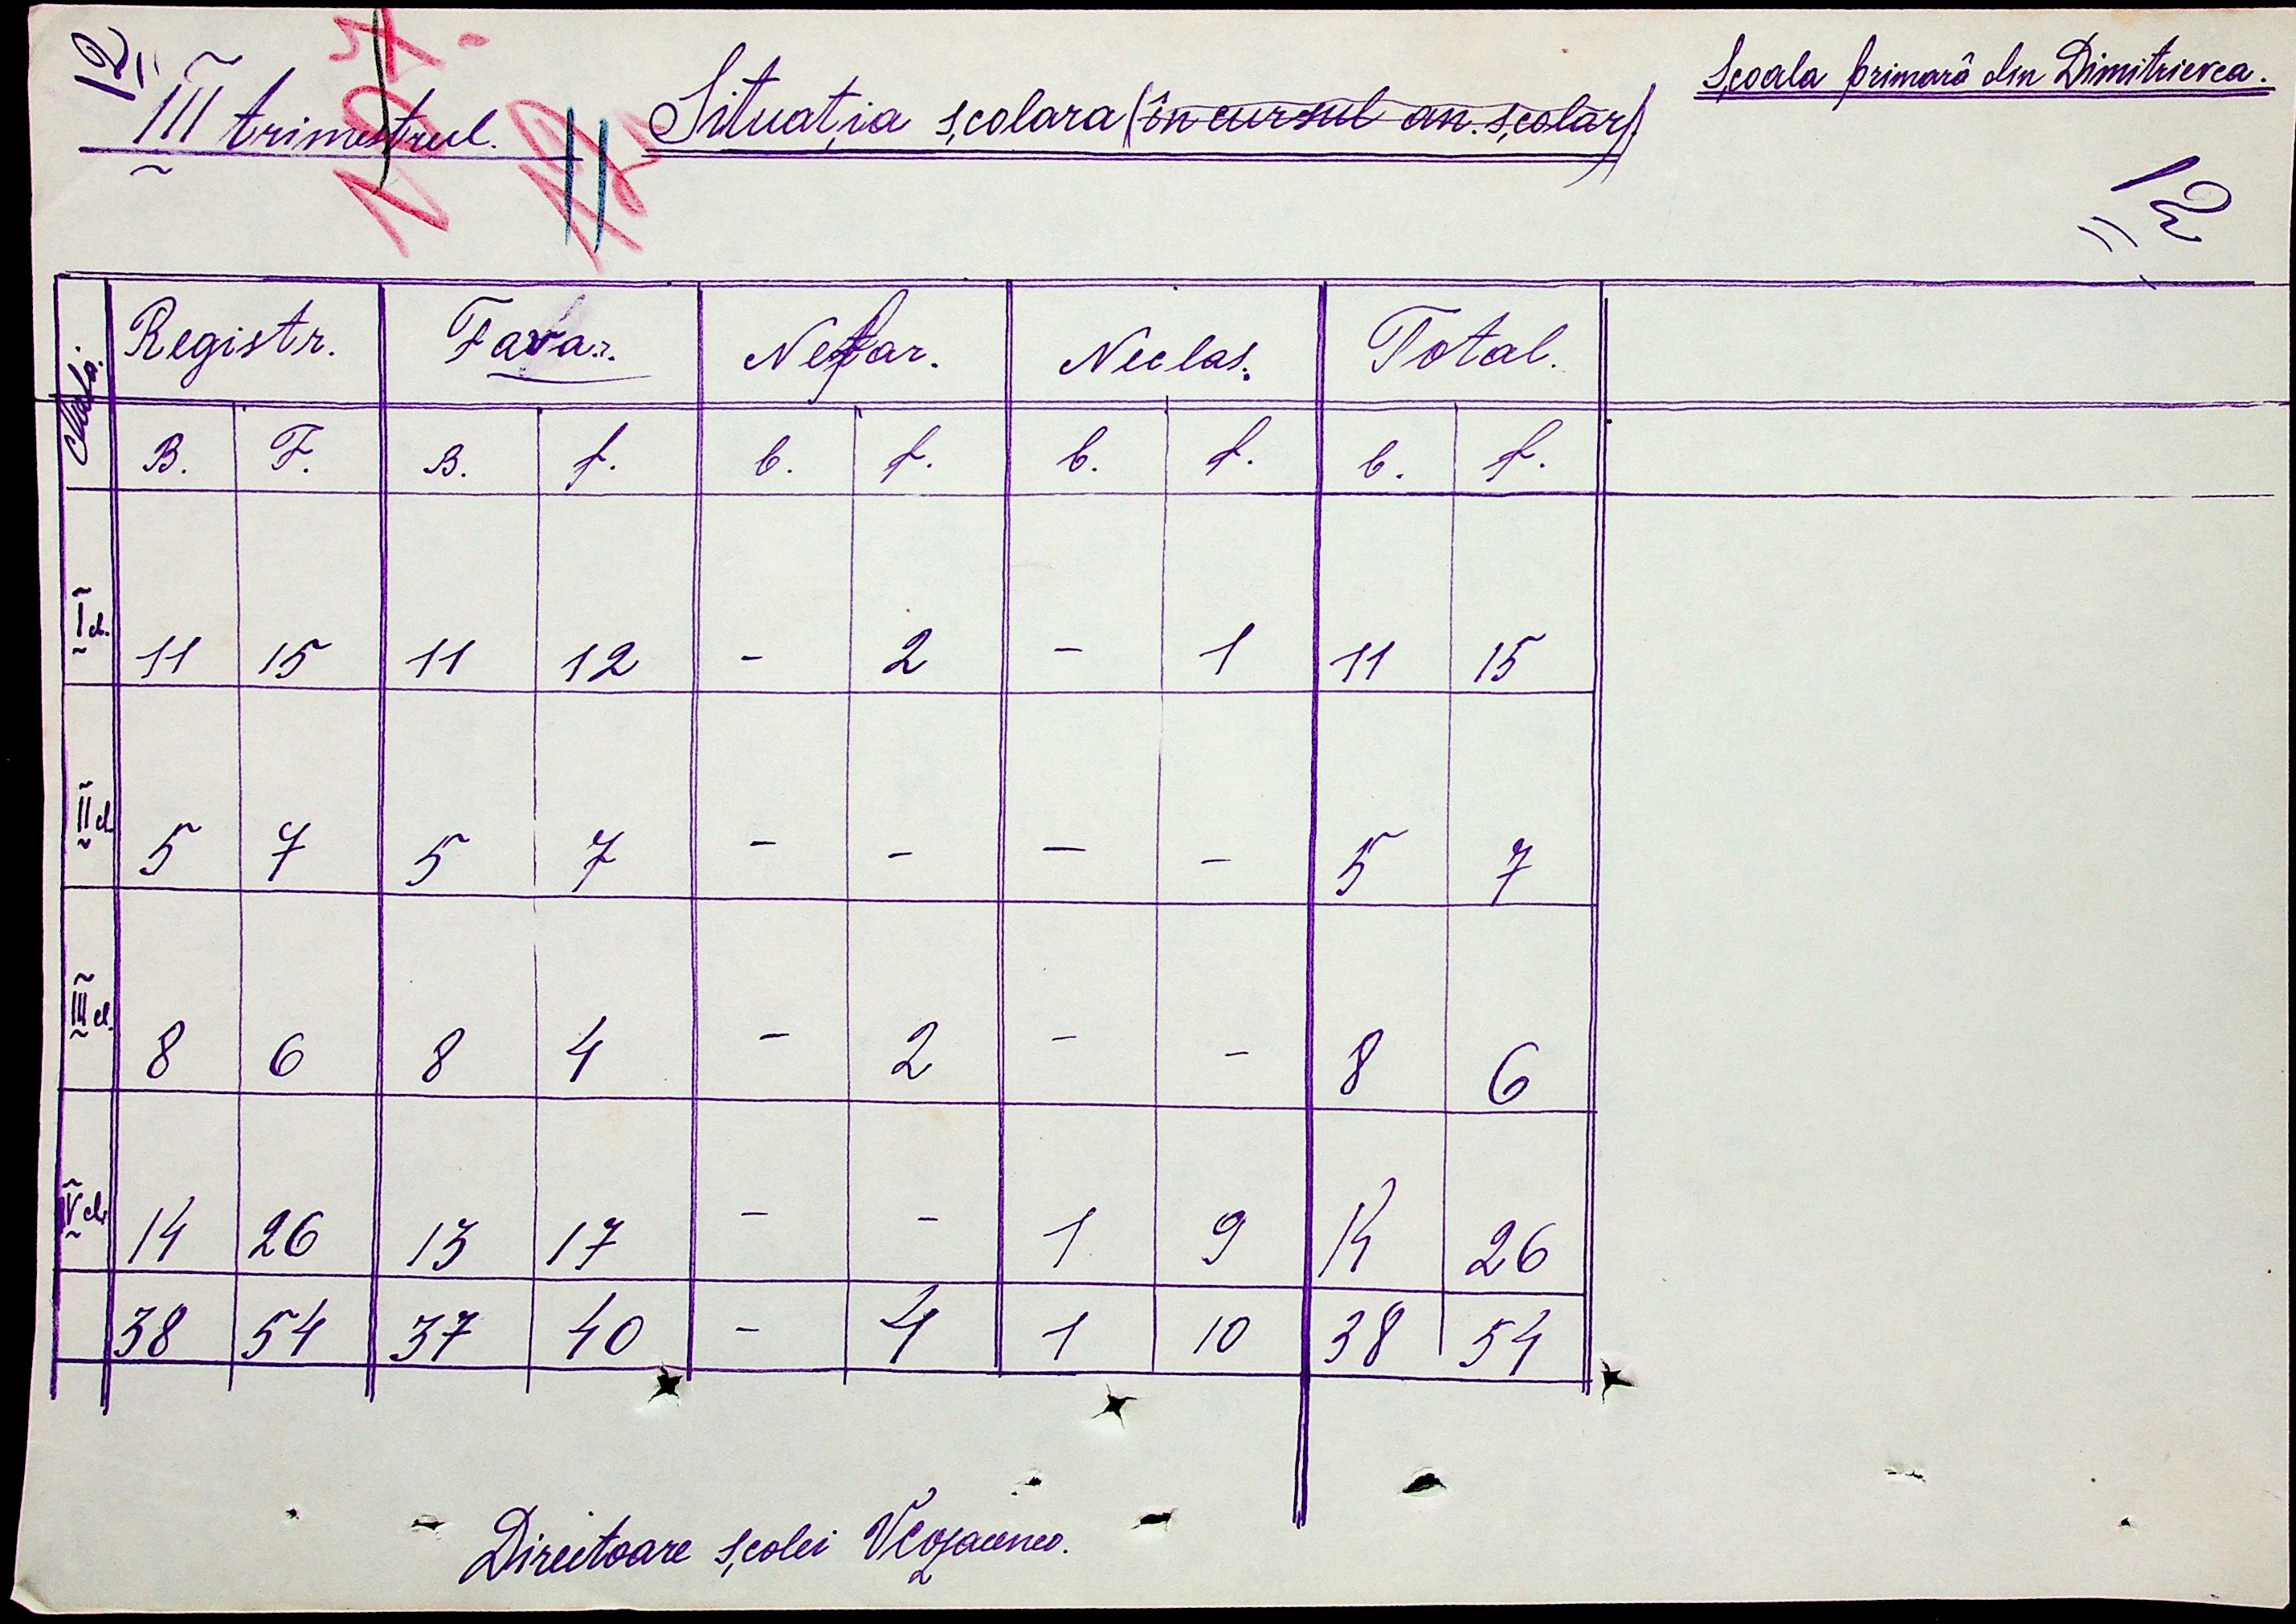 12
III trimestrul.
Situația școlara (în cursul an. școlar).
Școala primară din Dimitrievca.
12
Clasa. Registr. Favor. Nefav. Neclas. Total.
B. F. B. f. b. f. b. f. b. f.
I cl. 11 15 11 12 - 2 - 1 11 15
II cl. 5 7 5 7 - - - - 5 7
III cl. 8 6 8 4 - 2 - - 8 6
IV cl. 14 26 13 17 - - 1 9 14 26
38 54 37 40 - 4 1 10 38 54
Directoare școlei